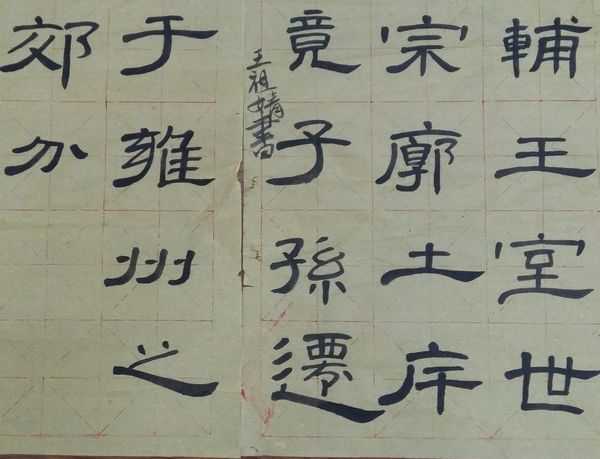 輔王室世
宗廓土斥
竟子孫遷
王祖婧書
于雍州之
郊分